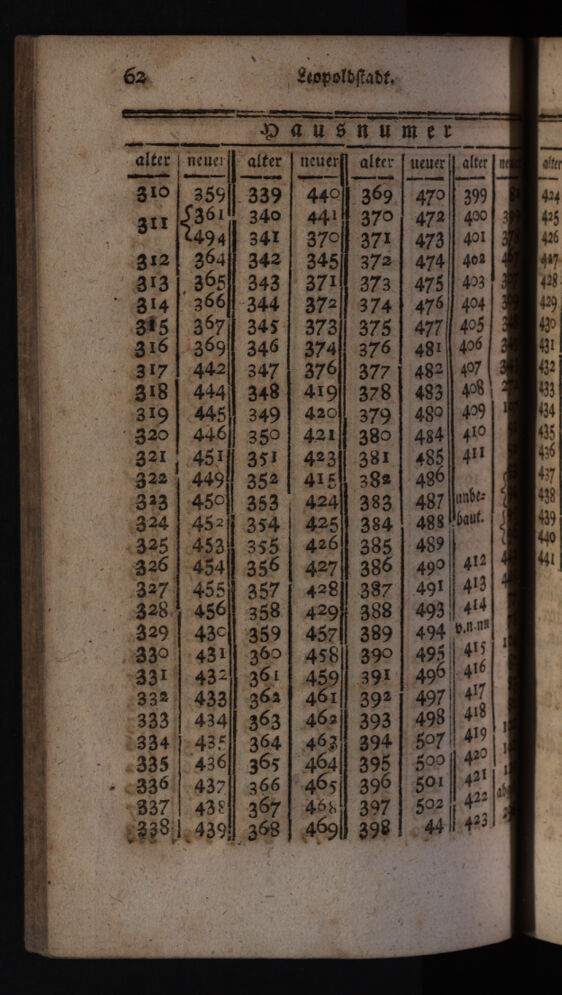 62 Leopoldstadt.
Hausnumer
alter neuer alter neuer alter neuer alter
310 359 339 440 369 470 399
311 361 340 441 370 472 400
494 341 370 371 473 401
312 364 342 345 372 474 402
313 365 343 371 373 475 403
314 366 344 372 374 476 404
315 367 345 373 375 477 405
316 369 346 374 376 481 406
317 442 347 376 377 482 407
318 444 348 419 378 483 408
319 445 349 420 379 480 409
320 446 350 421 380 484 410
321 451 351 423 381 485 411
322 449 352 415 382 486
323 450 353 424 383 487 unbe-
324 452 354 425 384 488 baut.
325 453 355 426 385 489
326 454 356 427 386 490 412
327 455 357 428 387 491 413
328 456 358 429 388 493 414
329 430 359 457 389 494 v.n.nu
330 431 360 458 390 495 415
331 432 361 459 391 496 416
332 433 362 461 392 497 417
333 434 363 462 393 498 418
334 435 364 463 394 507 419
335 436 365 464 395 500 420
336 437 366 465 396 501 421
337 438 367 468 397 502 422
338 439 368 469 398 44 423
alter
424
425
426
427
428
429
430
431
432
433
434
435
436
437
438
439
440
441